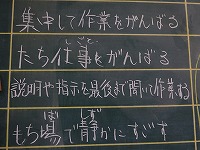 集中して作業をがんばる
たち仕事をがんばる
説明や指示を最後まで聞いて作業する
もち場で静かにすごす